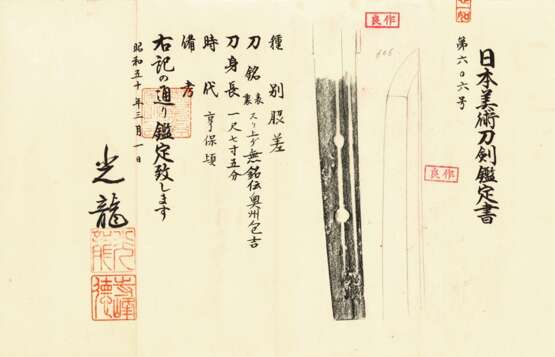 日本美術刀剣鑑定書
第六〇六号
良作
良作
種別 脇差
刀銘 表裏 スリ上ゲ無銘伝奥州包吉
刀身長 一尺七寸五分
時代 享保頃
備考
右記の通り鑑定致します
昭和五十年三月一日
光龍